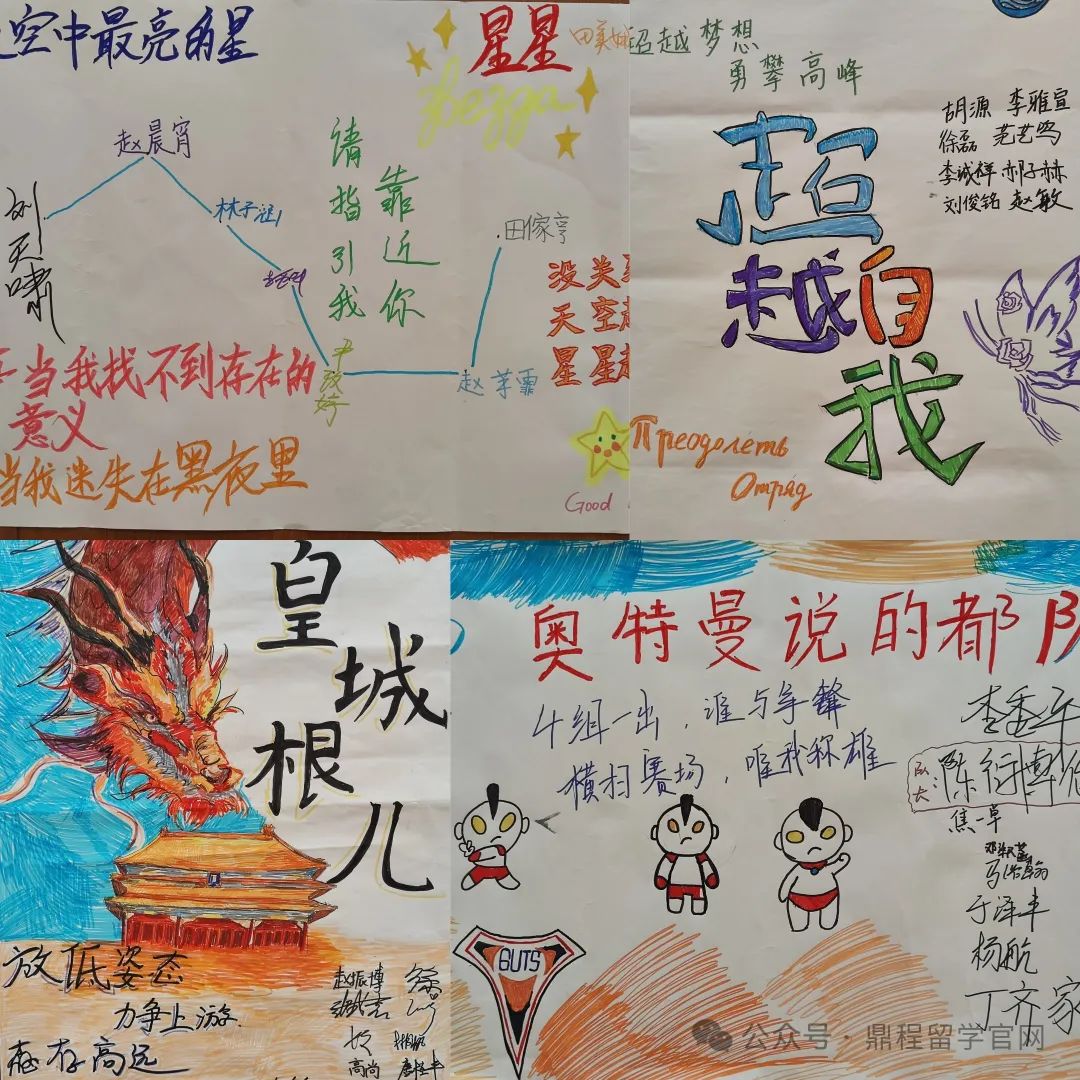 空中最亮的星
星星
звезда
赵晨宵
林子涵
刘天啸
请指引我
靠近你
田傢亨
没关
天空
星星
当我找不到存在的
意义
当我迷失在黑夜里
Good
超越梦想
勇攀高峰
胡源 李雅宣
徐磊 范艺鸣
李诚祥 郝子赫
刘俊铭 赵敏
超越自我
Преодолеть
Отряд
皇城根儿
放低姿态
力争上游
志存高远
赵振博
高尚
奥特曼说的都队
4组一出，谁与争锋
横扫赛场，唯我称雄
队长:陈衍博
焦一卓
马浩翰
于泽丰
杨航
丁齐家
GUTS
公众号·鼎程留学官网